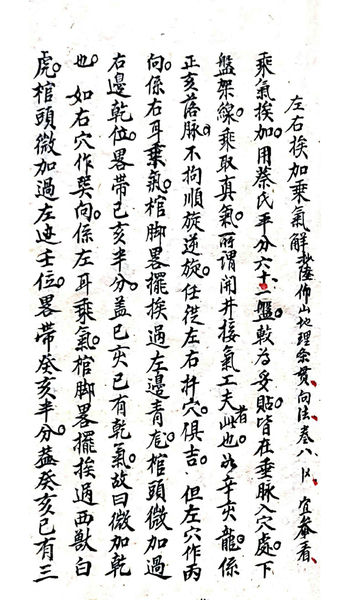 左右挨加乘氣解 陸佈山地理宗貫、向法、卷八、宜參看、
乘氣挨加。用蔡氏平分六十盤較為妥貼。皆在垂脉入穴處。下
盤架線。乘取真氣。所謂開井接氣工夫者此也。如辛亥龍係
正亥落脉。不拘順旋逆旋。任從左右扦穴。俱吉。但左穴作丙
向。係右耳乘氣。棺脚畧擺挨過左邊青龍。棺頭微加過
右邊乾位。畧帶己亥半分。蓋己亥已有乾氣。故曰微加乾
也。如右穴作巽向。係左耳乘氣。棺脚畧擺挨過西獸白
虎。棺頭微加過左边壬位。畧帶癸亥半分。蓋癸亥已有三